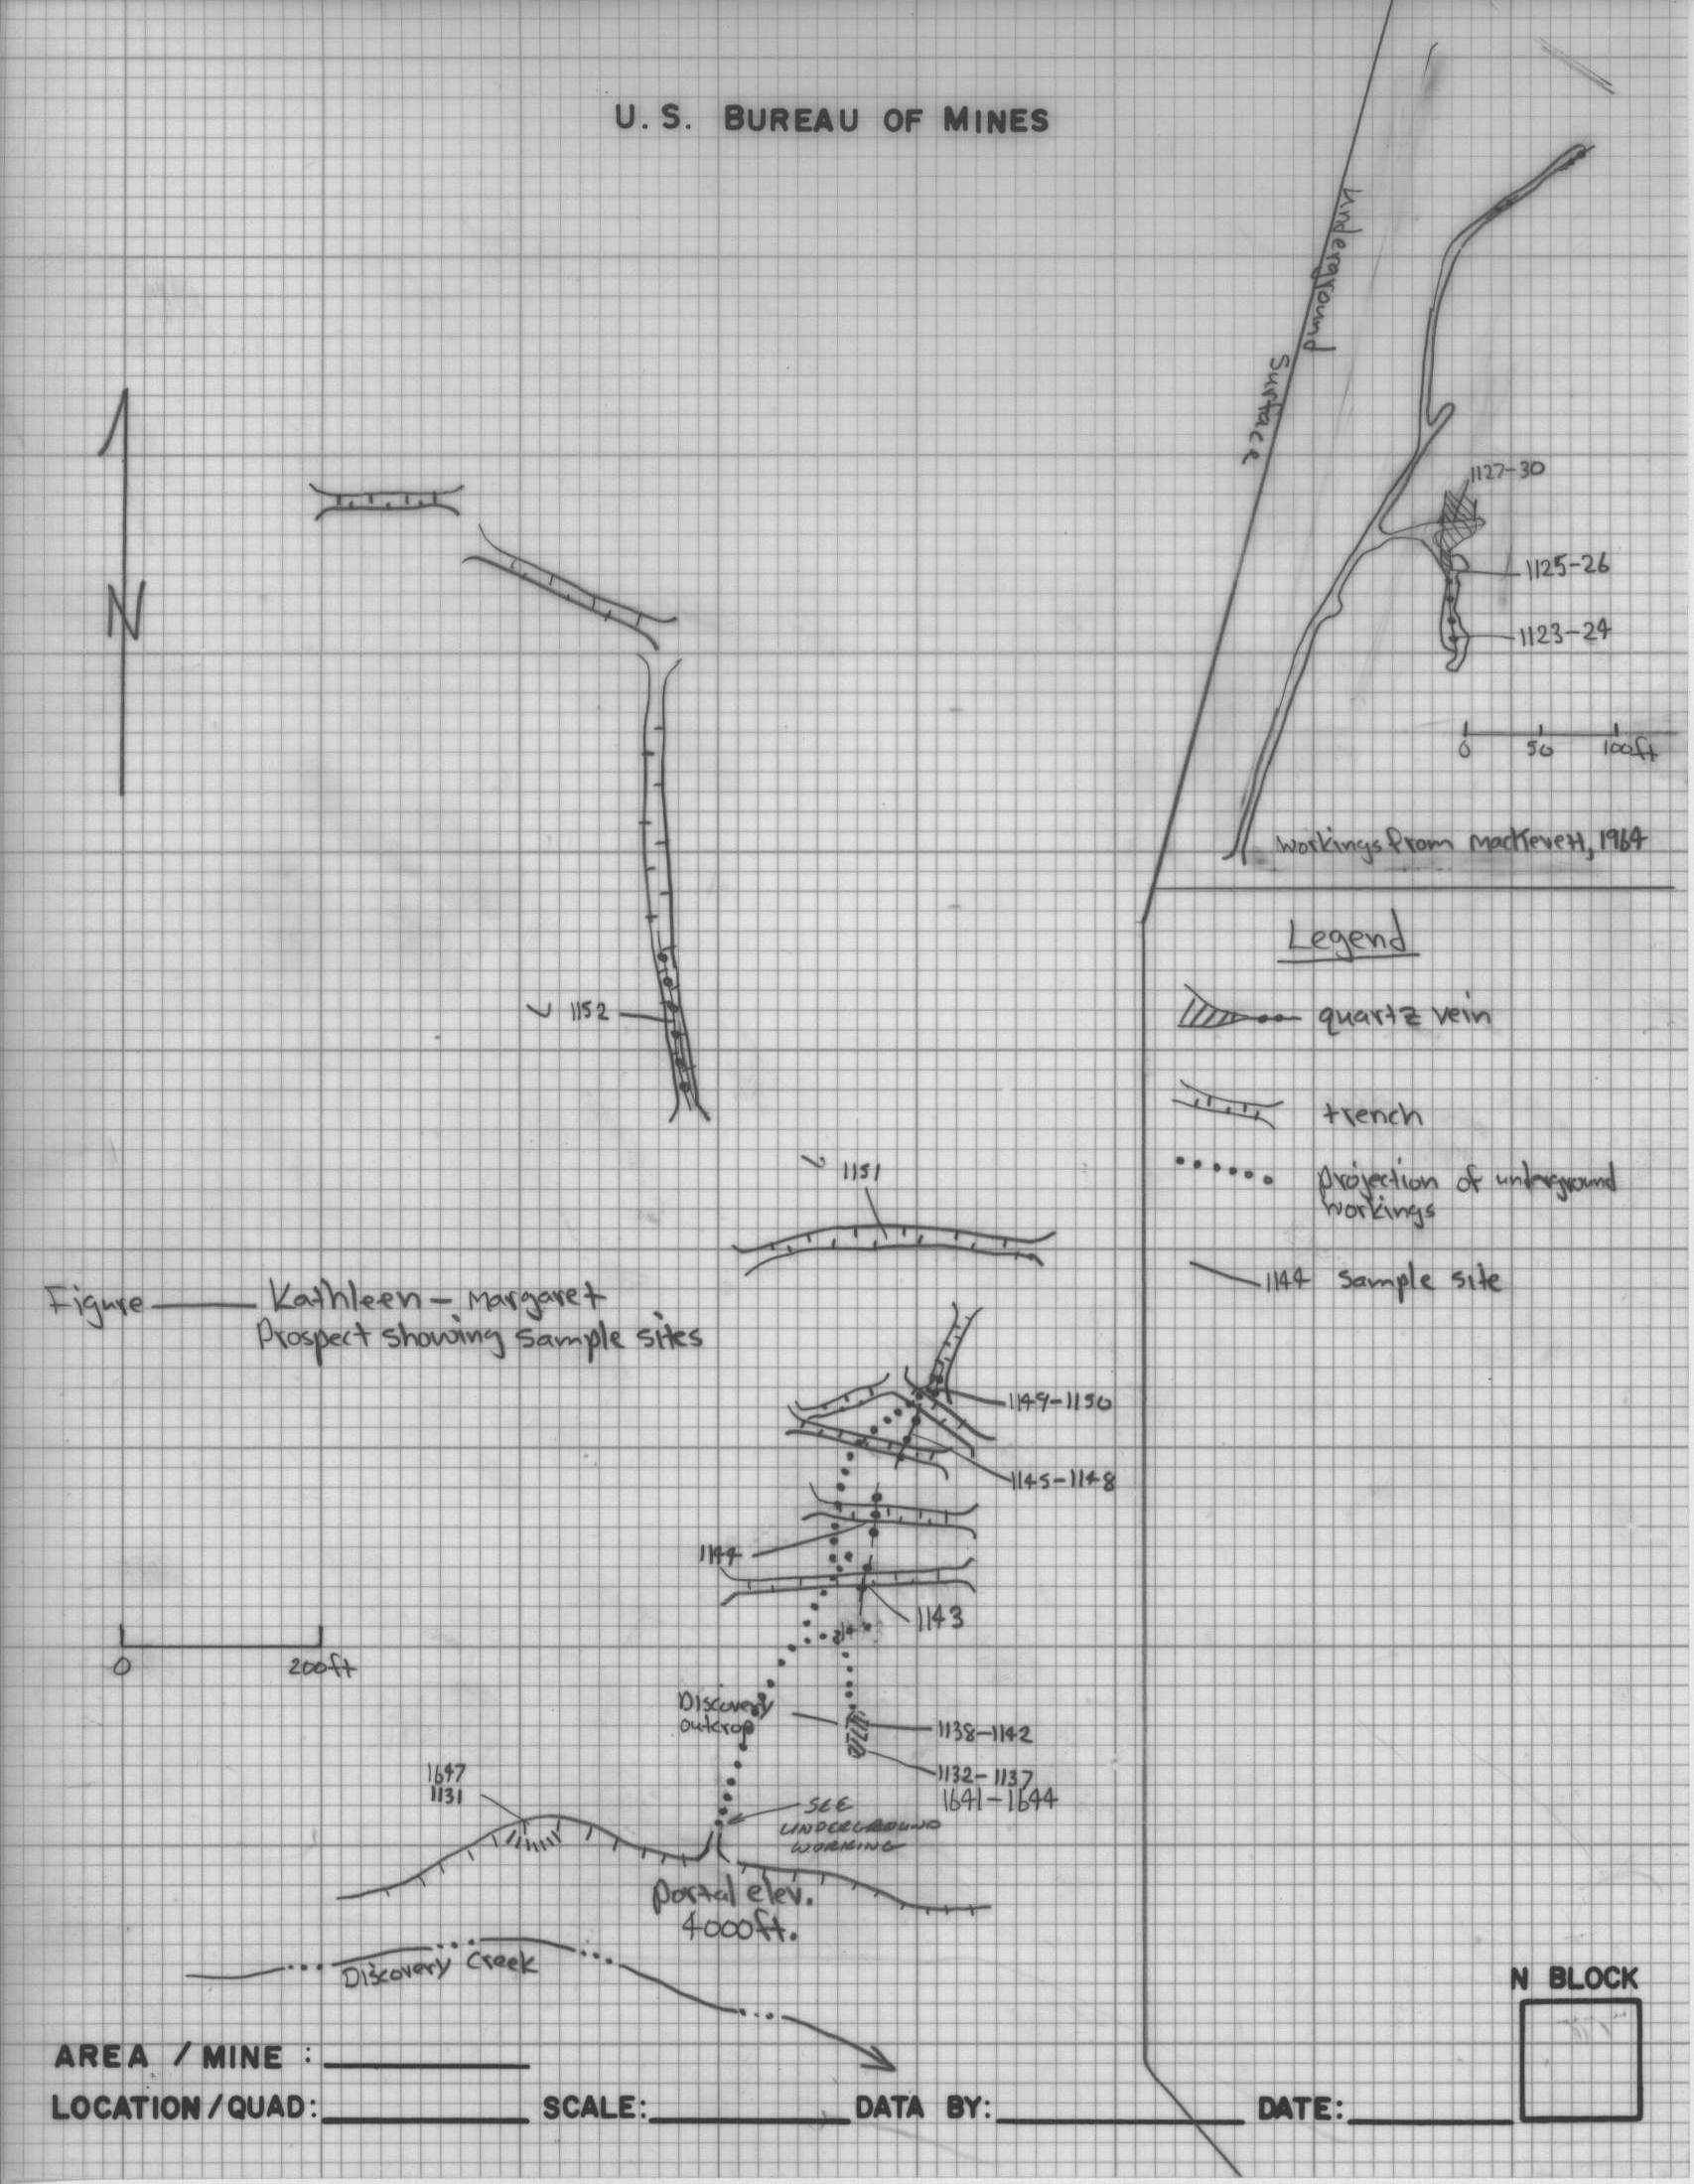 U.S. BUREAU OF MINES
Underground
Surface
1127-30
1125-26
1123-24
0 50 100ft
Workings from MacKevett, 1964
N
Legend
quartz vein
trench
projection of underground
workings
1144 sample site
1152
1151
Figure Kathleen - Margaret
Prospect showing sample sites
1149-1150
1145-1148
1144
1143
0 200ft
Discovery
outcrop
1138-1142
1132-1137
1641-1644
1647
1131
SEE
UNDERGROUND
WORKING
Portal elev.
4000ft.
Discovery Creek
N BLOCK
AREA / MINE :
LOCATION/QUAD: SCALE: DATA BY: DATE: